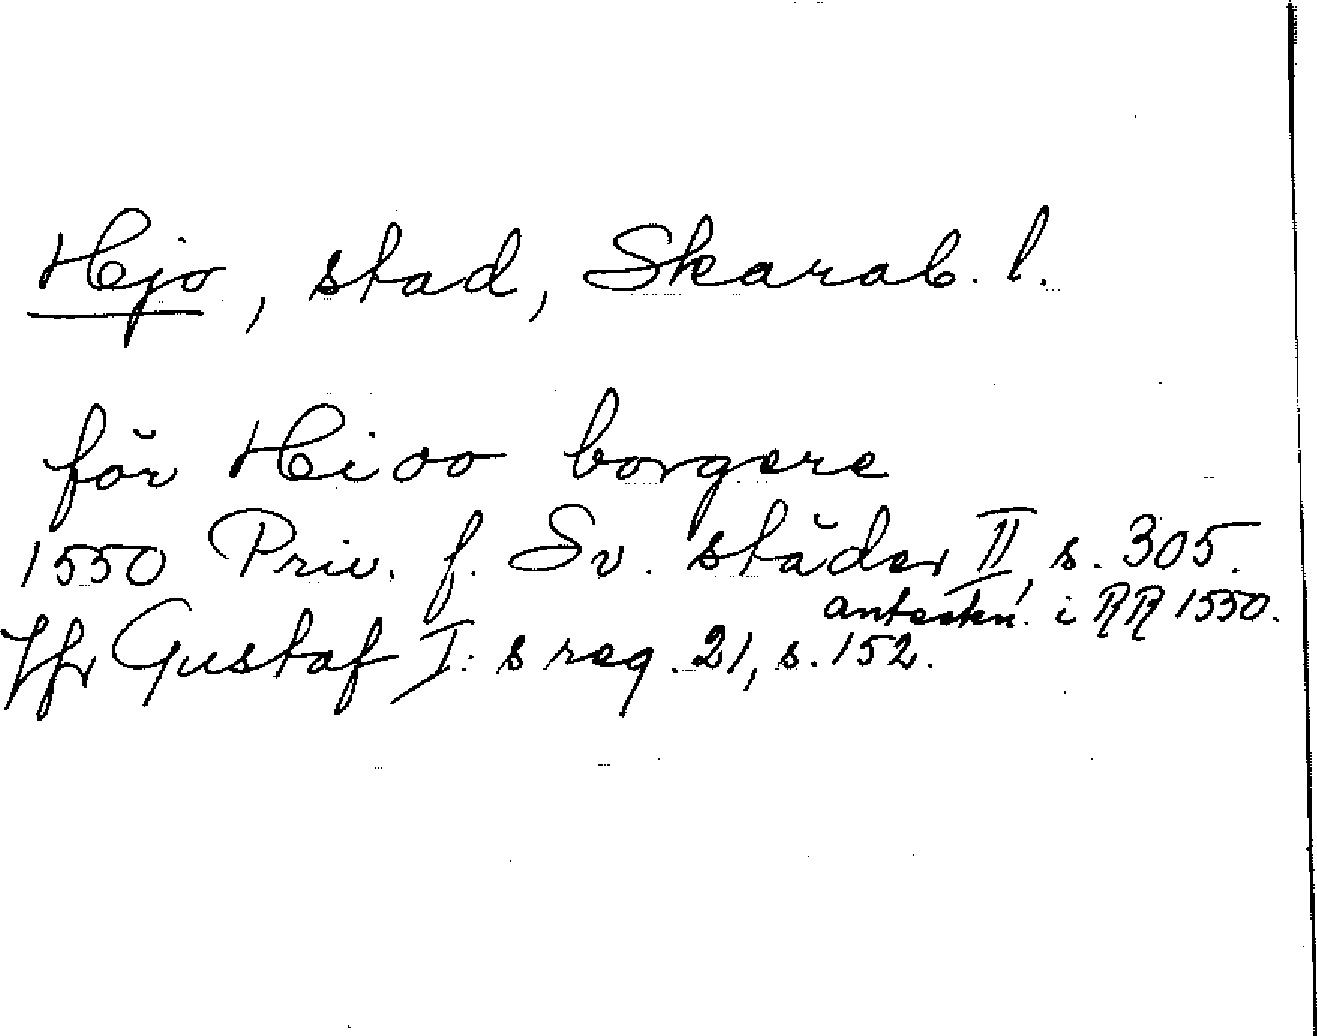 Hjo, stad, Skarab. l.
för Hioo borgere
1550 Priv. f. Sv. städer II, s. 305.
anteckn. i RR 1550.
Jfr Gustaf I:s reg. 21, s. 152.